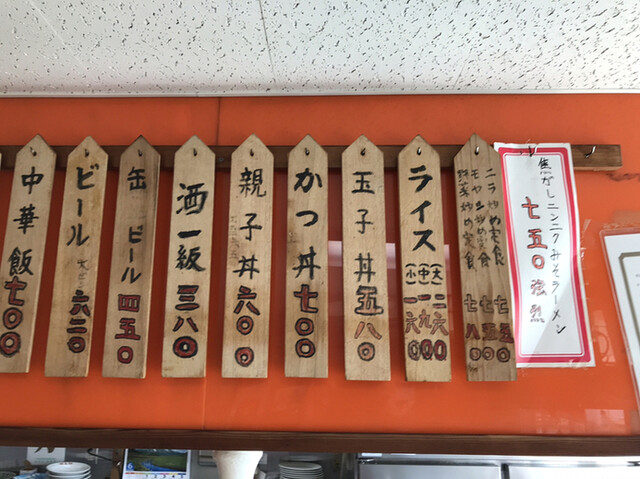 焦がしニンニクみそラーメン
七五〇 強烈
ニラ炒め定食 七五〇
モヤシ炒め定食 七五〇
野菜炒め定食 七八〇
ライス
大 二六〇
中 一九〇
小 一六〇
玉子丼 五八〇
かつ丼 七〇〇
親子丼 六〇〇
酒一級 三八〇
缶ビール 四五〇
ビール 六二〇
中華飯 七〇〇
6